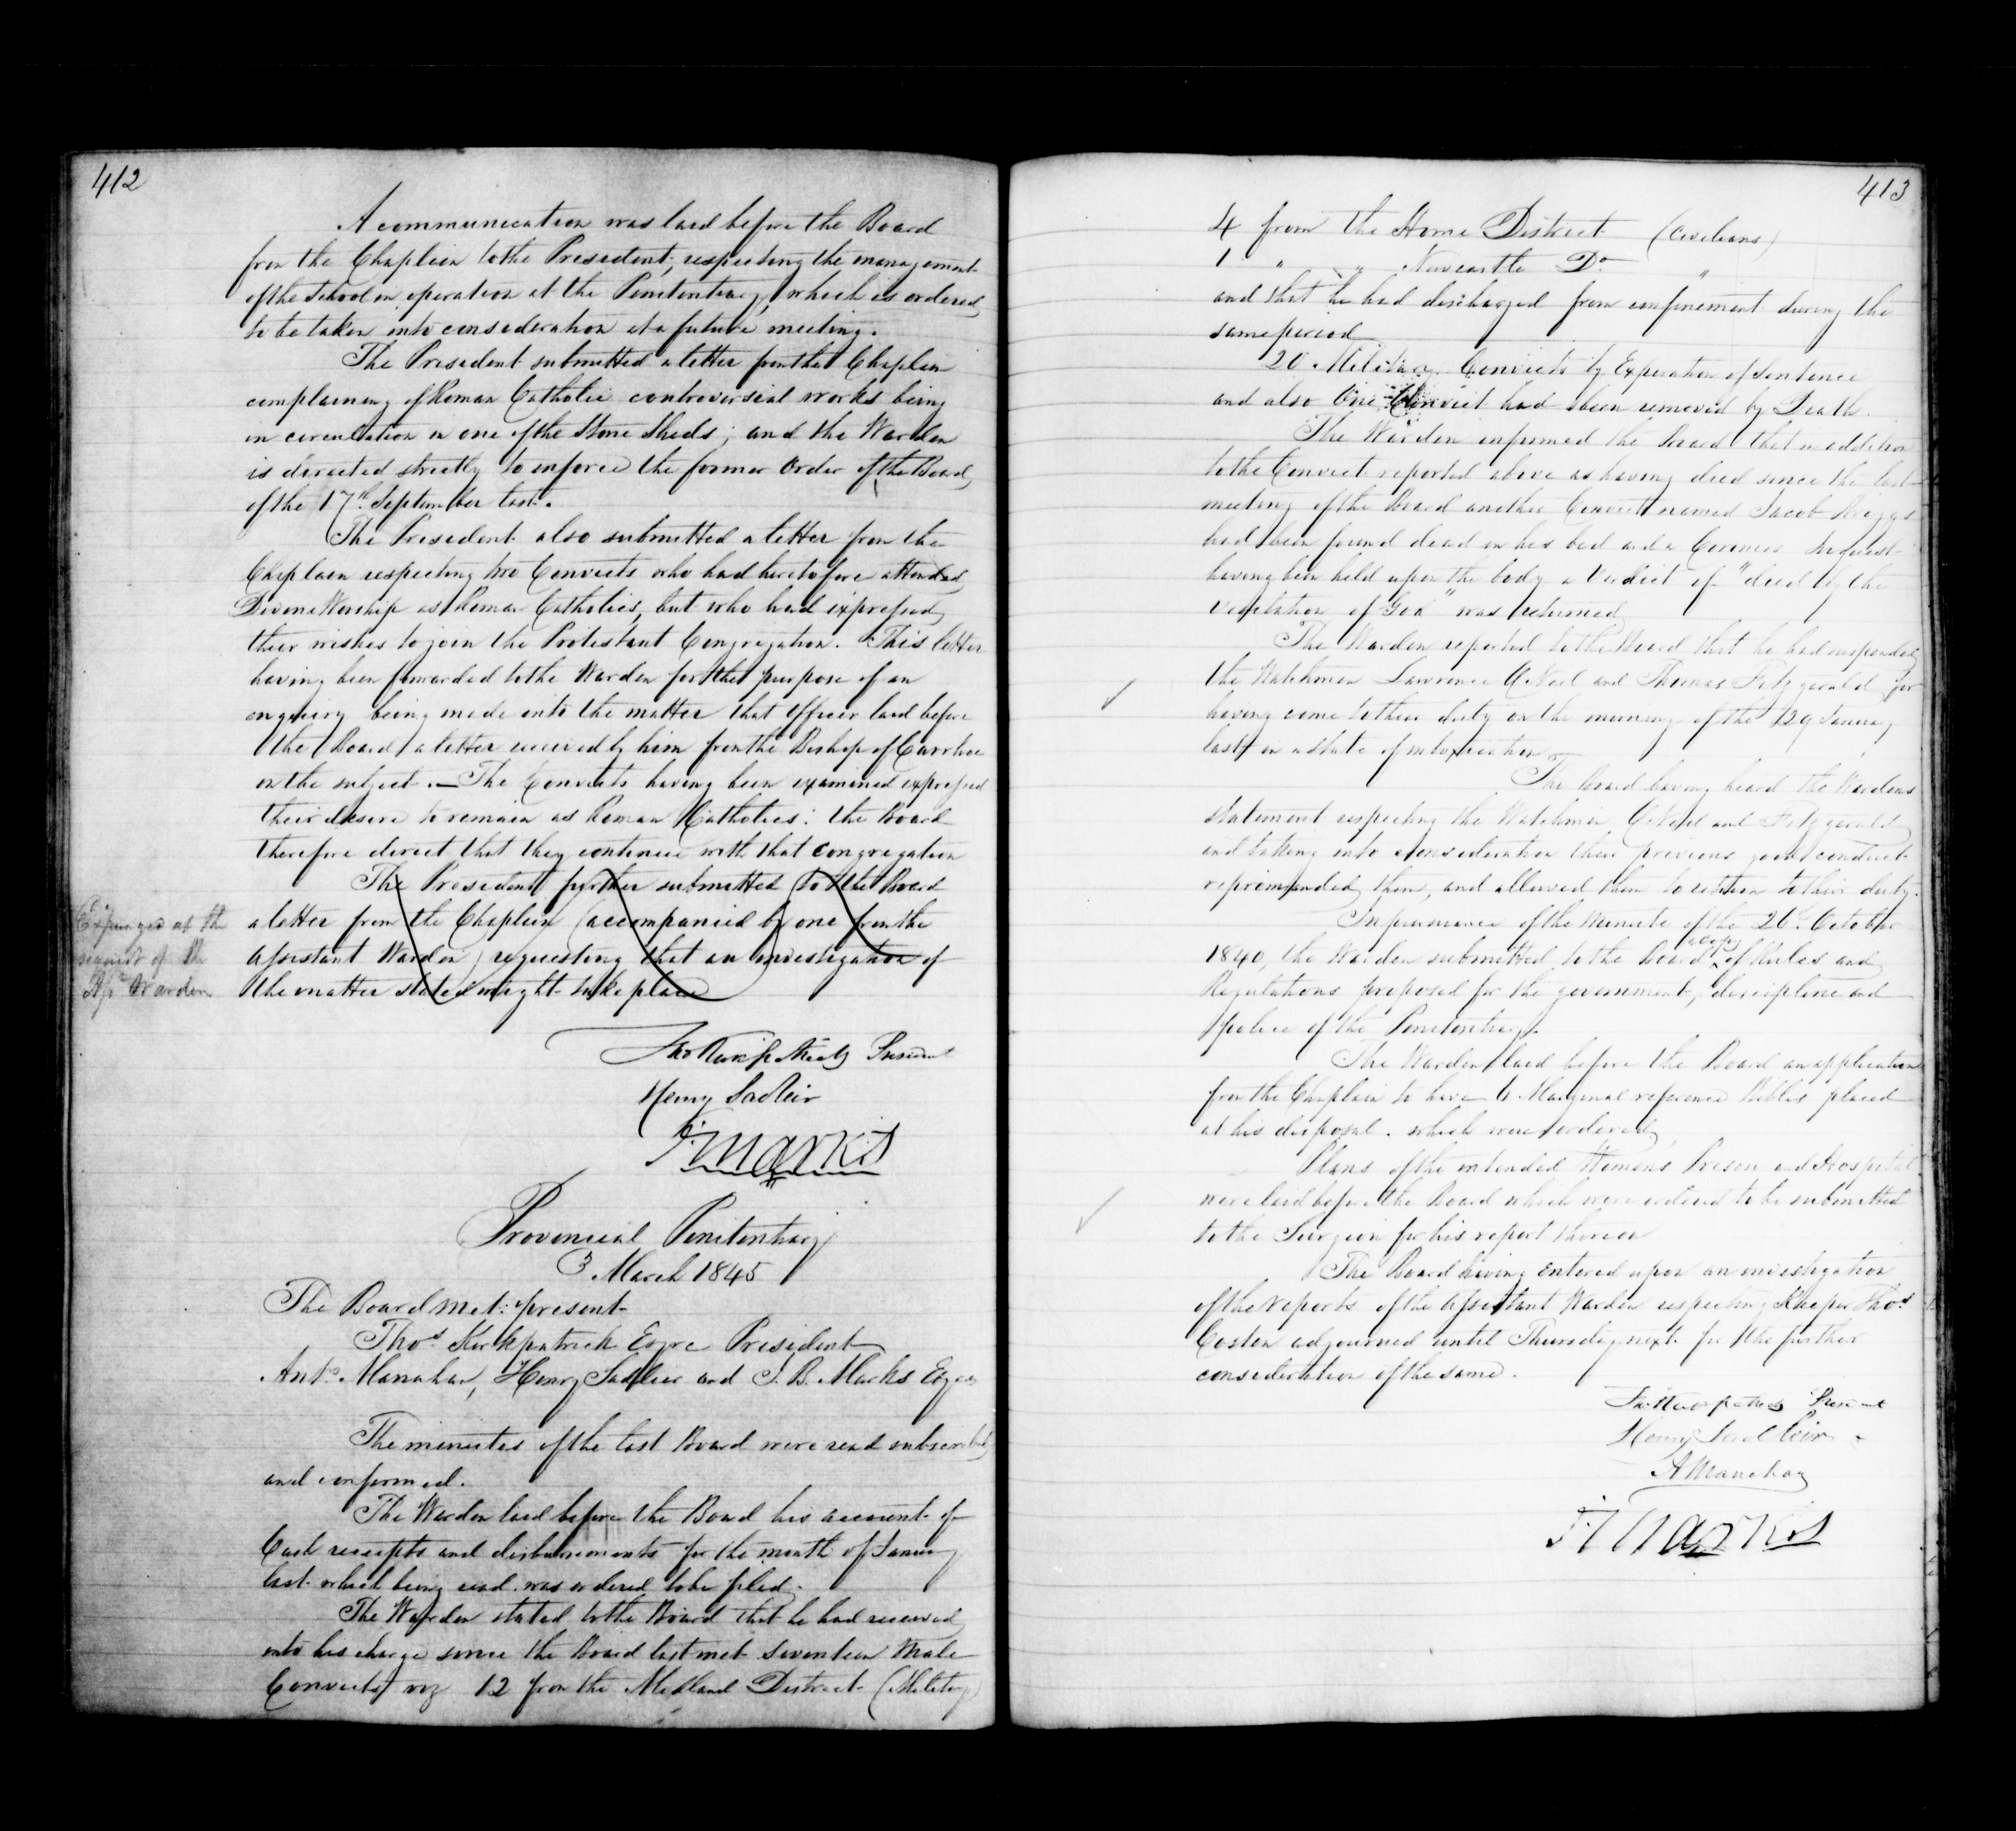 412
A communication was laid before the Board
from the Chaplain to the President, respecting the management
of the School in operation at the Penitentiary, which is ordered
to be taken into consideration at a future meeting.
The President submitted a letter from the Chaplain
complaining of Roman Catholic controversial works being
in circulation in one of the Stone Sheds; and the Warden
is directed strictly to enforce the former Order of the Board
of the 17th September last.
The President also submitted a letter from the
Chaplain respecting two Convicts who had heretofore attended
Divine Worship as Roman Catholics, but who had expressed
their wishes to join the Protestant Congregation. This letter
having been forwarded to the Warden for the purpose of an
enquiry being made into the matter that Officer laid before
the Board a letter received by him from the Bishop of Carrhoe
on the subject. — The Convicts having been examined expressed
their desire to remain as Roman Catholics: the Board
therefore direct that they continue with that congregation
The President further submitted to the Board
a letter from the Chaplain (accompanied by one from the
Assistant Warden) requesting that an investigation of
the matter stated might take place
Expunged at the
request of the
Asst Warden
Thos Kirkpatrick President
Henry Sadleir
J B Marks
Provincial Penitentiary
3 March 1845
The Board met: present
Thos Kirkpatrick Esqre President
Anty Manahan, Henry Sadleir and J. B. Marks Esqres
The minutes of the last Board were read subscribed
and confirmed.
The Warden laid before the Board his account of
Cash receipts and disbursements for the month of January
last which being read was ordered to be filed.
The Warden stated to the Board that he had received
into his charge since the Board last met seventeen Male
Convicts viz 12 from the Midland District (Military)
413
4 from the Home District (Civilians)
1 " " Newcastle Do "
and that he had discharged from confinement during the
same period
20 Military Convicts by Expiration of Sentence
and also One Convict had been removed by Death.
The Warden informed the Board that in addition
to the Convict reported above as having died since the last
meeting of the Board another Convict named Jacob Briggs
had been found dead in his bed and a Coroners Inquest
having been held upon the body a Verdict of "died by the
visitation of God" was returned
The Warden reported to the Board that he had suspended
the Watchmen Lawrence O'Neil and Thomas Fitzgerald for
having come to their duty on the morning of the 29 January
last in a state of intoxication
The Board having heard the Wardens
statement respecting the Watchmen O'Neil and Fitzgerald
and taking into consideration their previous good conduct
reprimanded them, and allowed them to return to their duty.
In pursuance of the Minute of the 26th October
1840, the Warden submitted to the Board a copy of Rules and
Regulations proposed for the government, discipline and
police of the Penitentiary.
The Warden laid before the Board an application
from the Chaplain to have 6 Marginal reference Bibles placed
at his disposal. which were ordered
Plans of the intended Womens Prison and Hospital
were laid before the Board which were ordered to be submitted
to the Surgeon for his report thereon
The Board having entered upon an investigation
of the reports of the Assistant Warden respecting Keeper Thos
Costen adjourned until Thursday next for the further
consideration of the same.
Thos Kirkpatrick President
Henry Sadleir
A Manahan
J B Marks